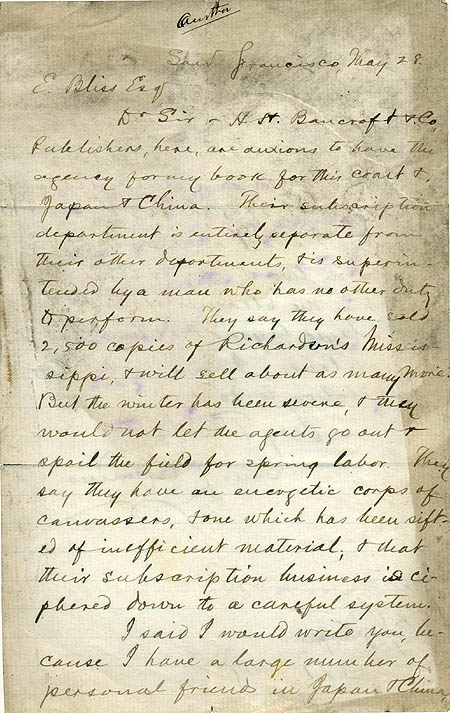 Author
San Francisco, May 28.
E. Bliss Esq
Dr Sir – H. H. Bancroft & Co,
Publishers, here, are anxious to have the
agency for my book for this coast &
Japan & China. Their subscription
department is entirely separate from
their other departments, & is superin-
tended by a man who has no other duty
to perform. They say they have sold
2,500 copies of Richardson's Missis
sippi, & will sell about as many more.
But the winter has been severe, & they
would not let the agents go out &
spoil the field for spring labor. They
say they have an energetic corps of
canvassers, & one which has been sift-
ed of inefficient material, & that
their subscription business is ci-
phered down to a careful system.
I said I would write you, be-
cause I have a large number of
personal friend in Japan & China